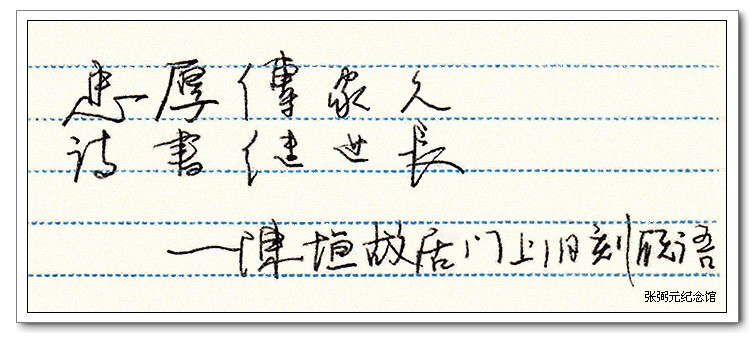 忠厚傳家久
诗書继世長
——陳垣故居门上旧刻联语
张弼元纪念馆